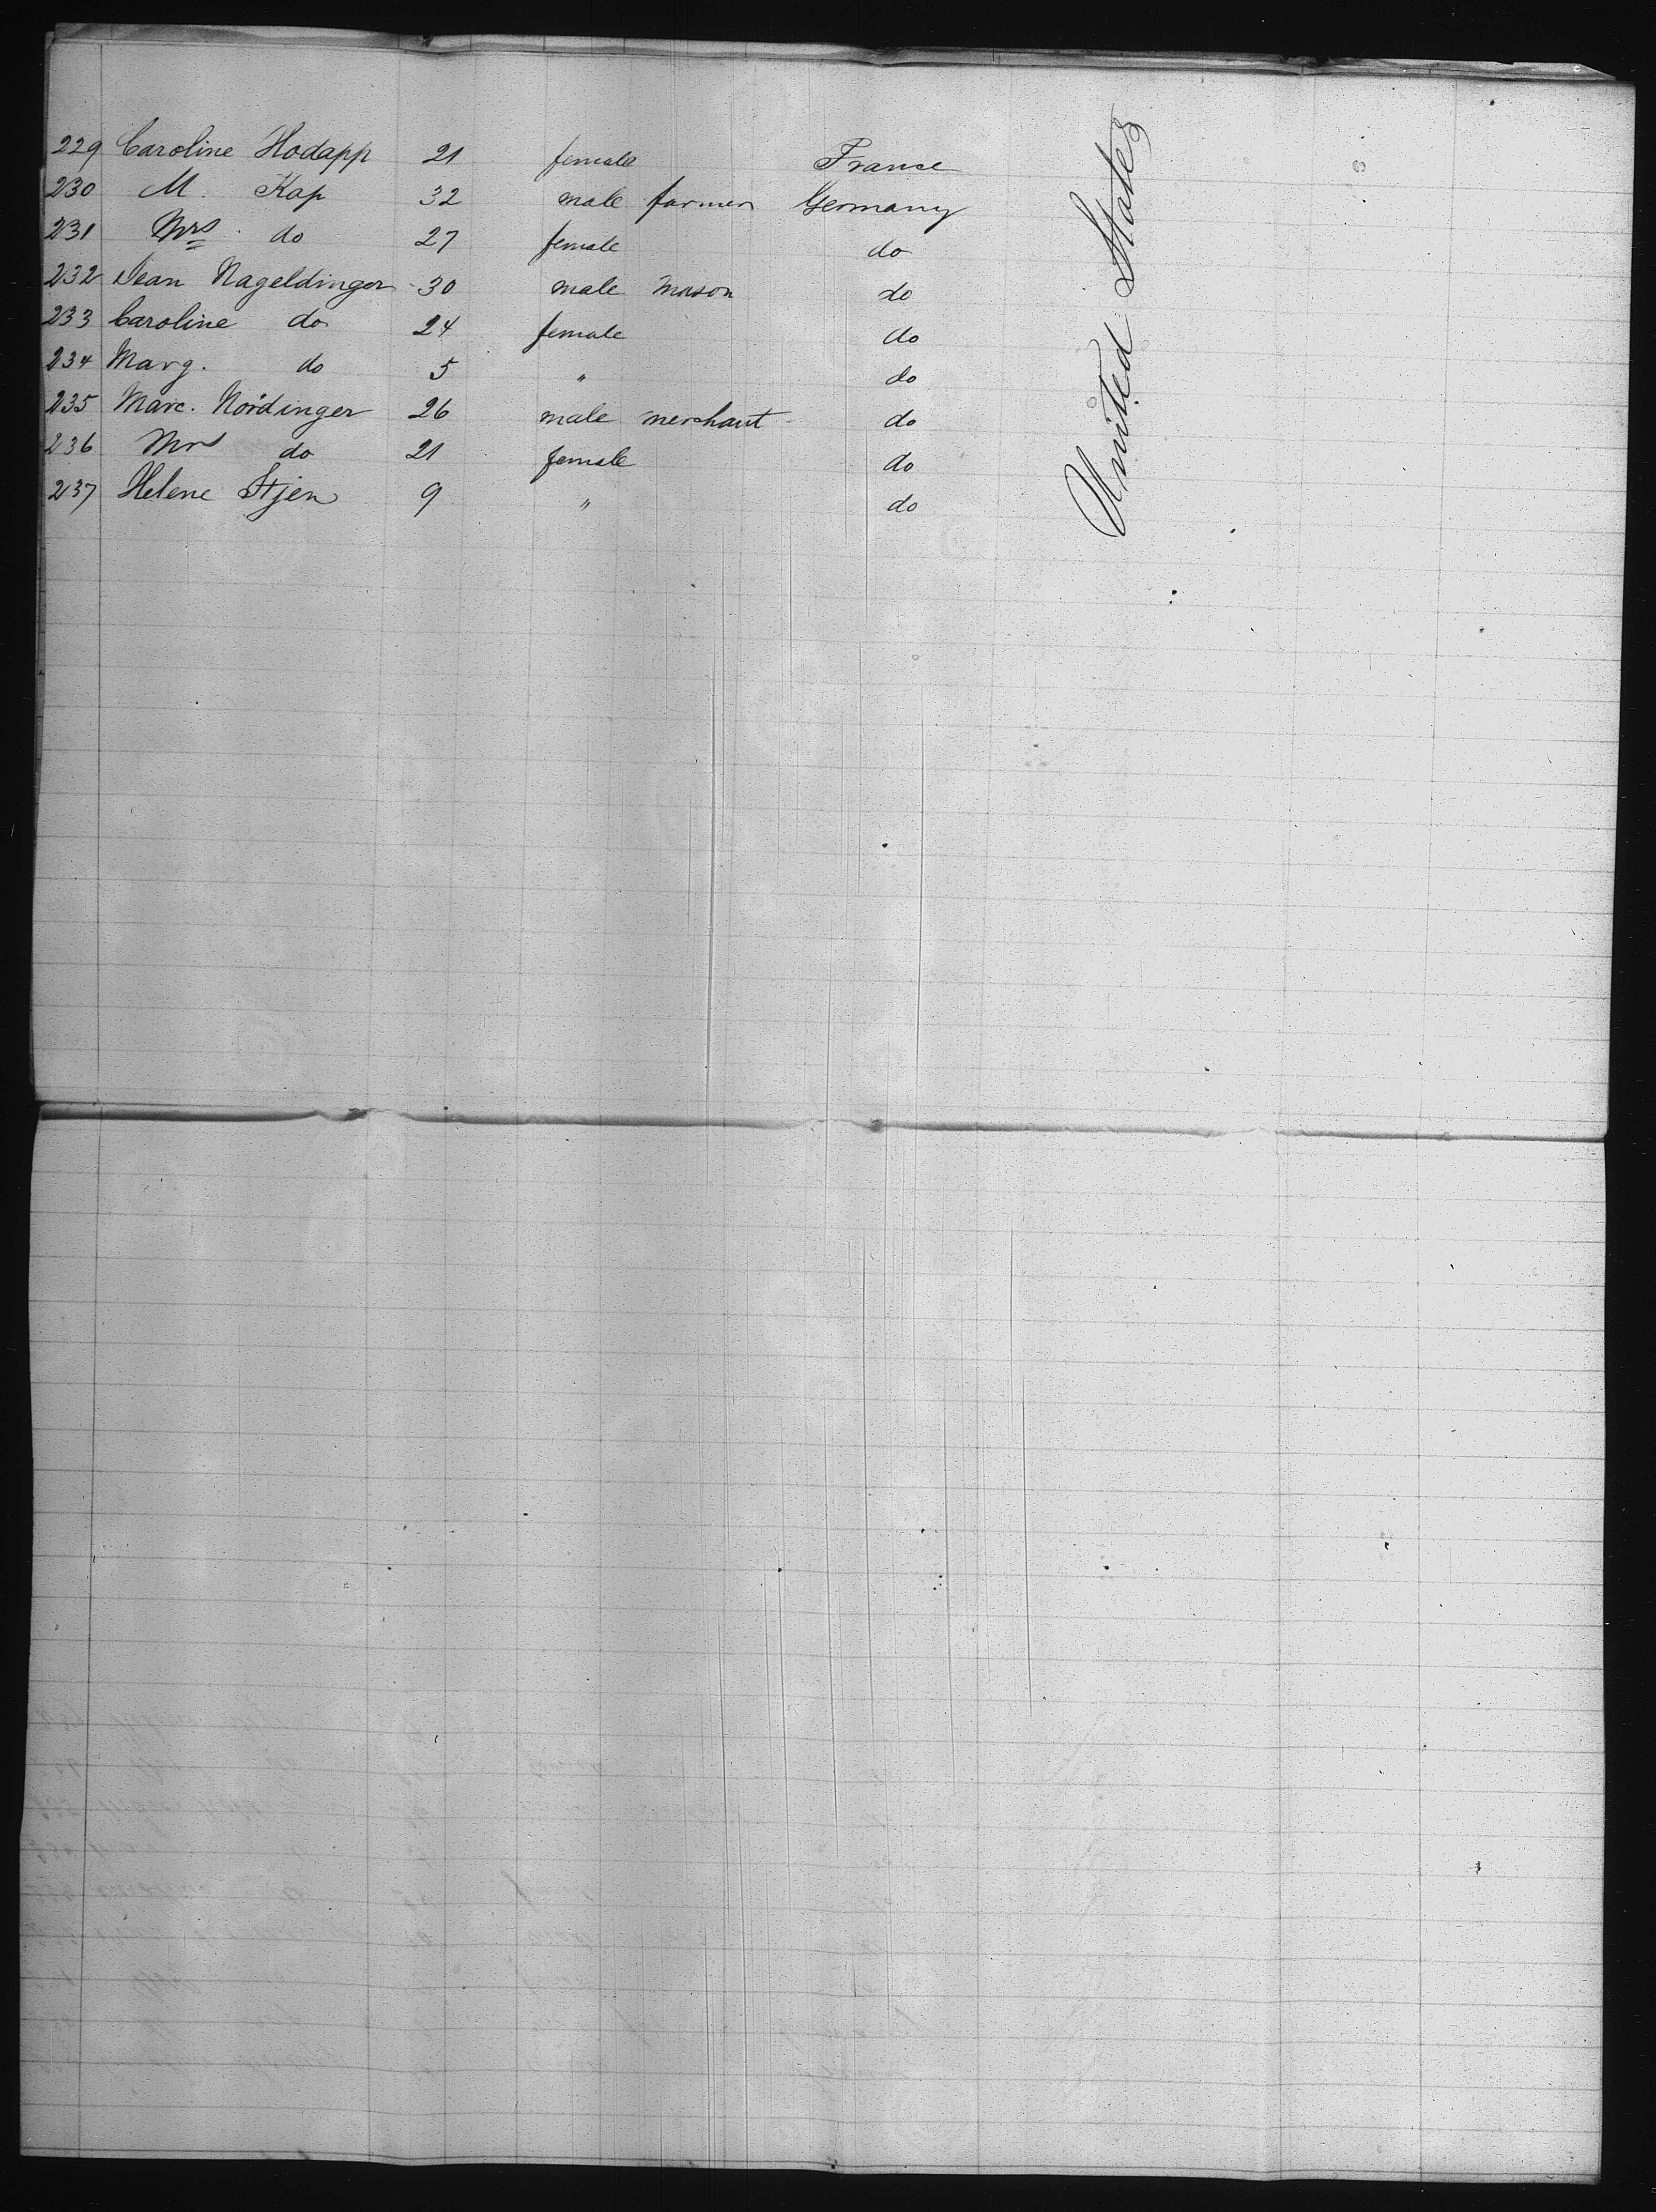 229 Caroline Hodapp 21 female France
230 M. Kap 32 male farmer Germany
231 Mrs do 27 female do
232 Jean Nageldinger 30 male mason do
233 Caroline do 24 female do
234 Marg. do 5 " do
235 Marc. Nördinger 26 male merchant do
236 Mrs do 21 female do
237 Helene Stjen 9 " do
United States